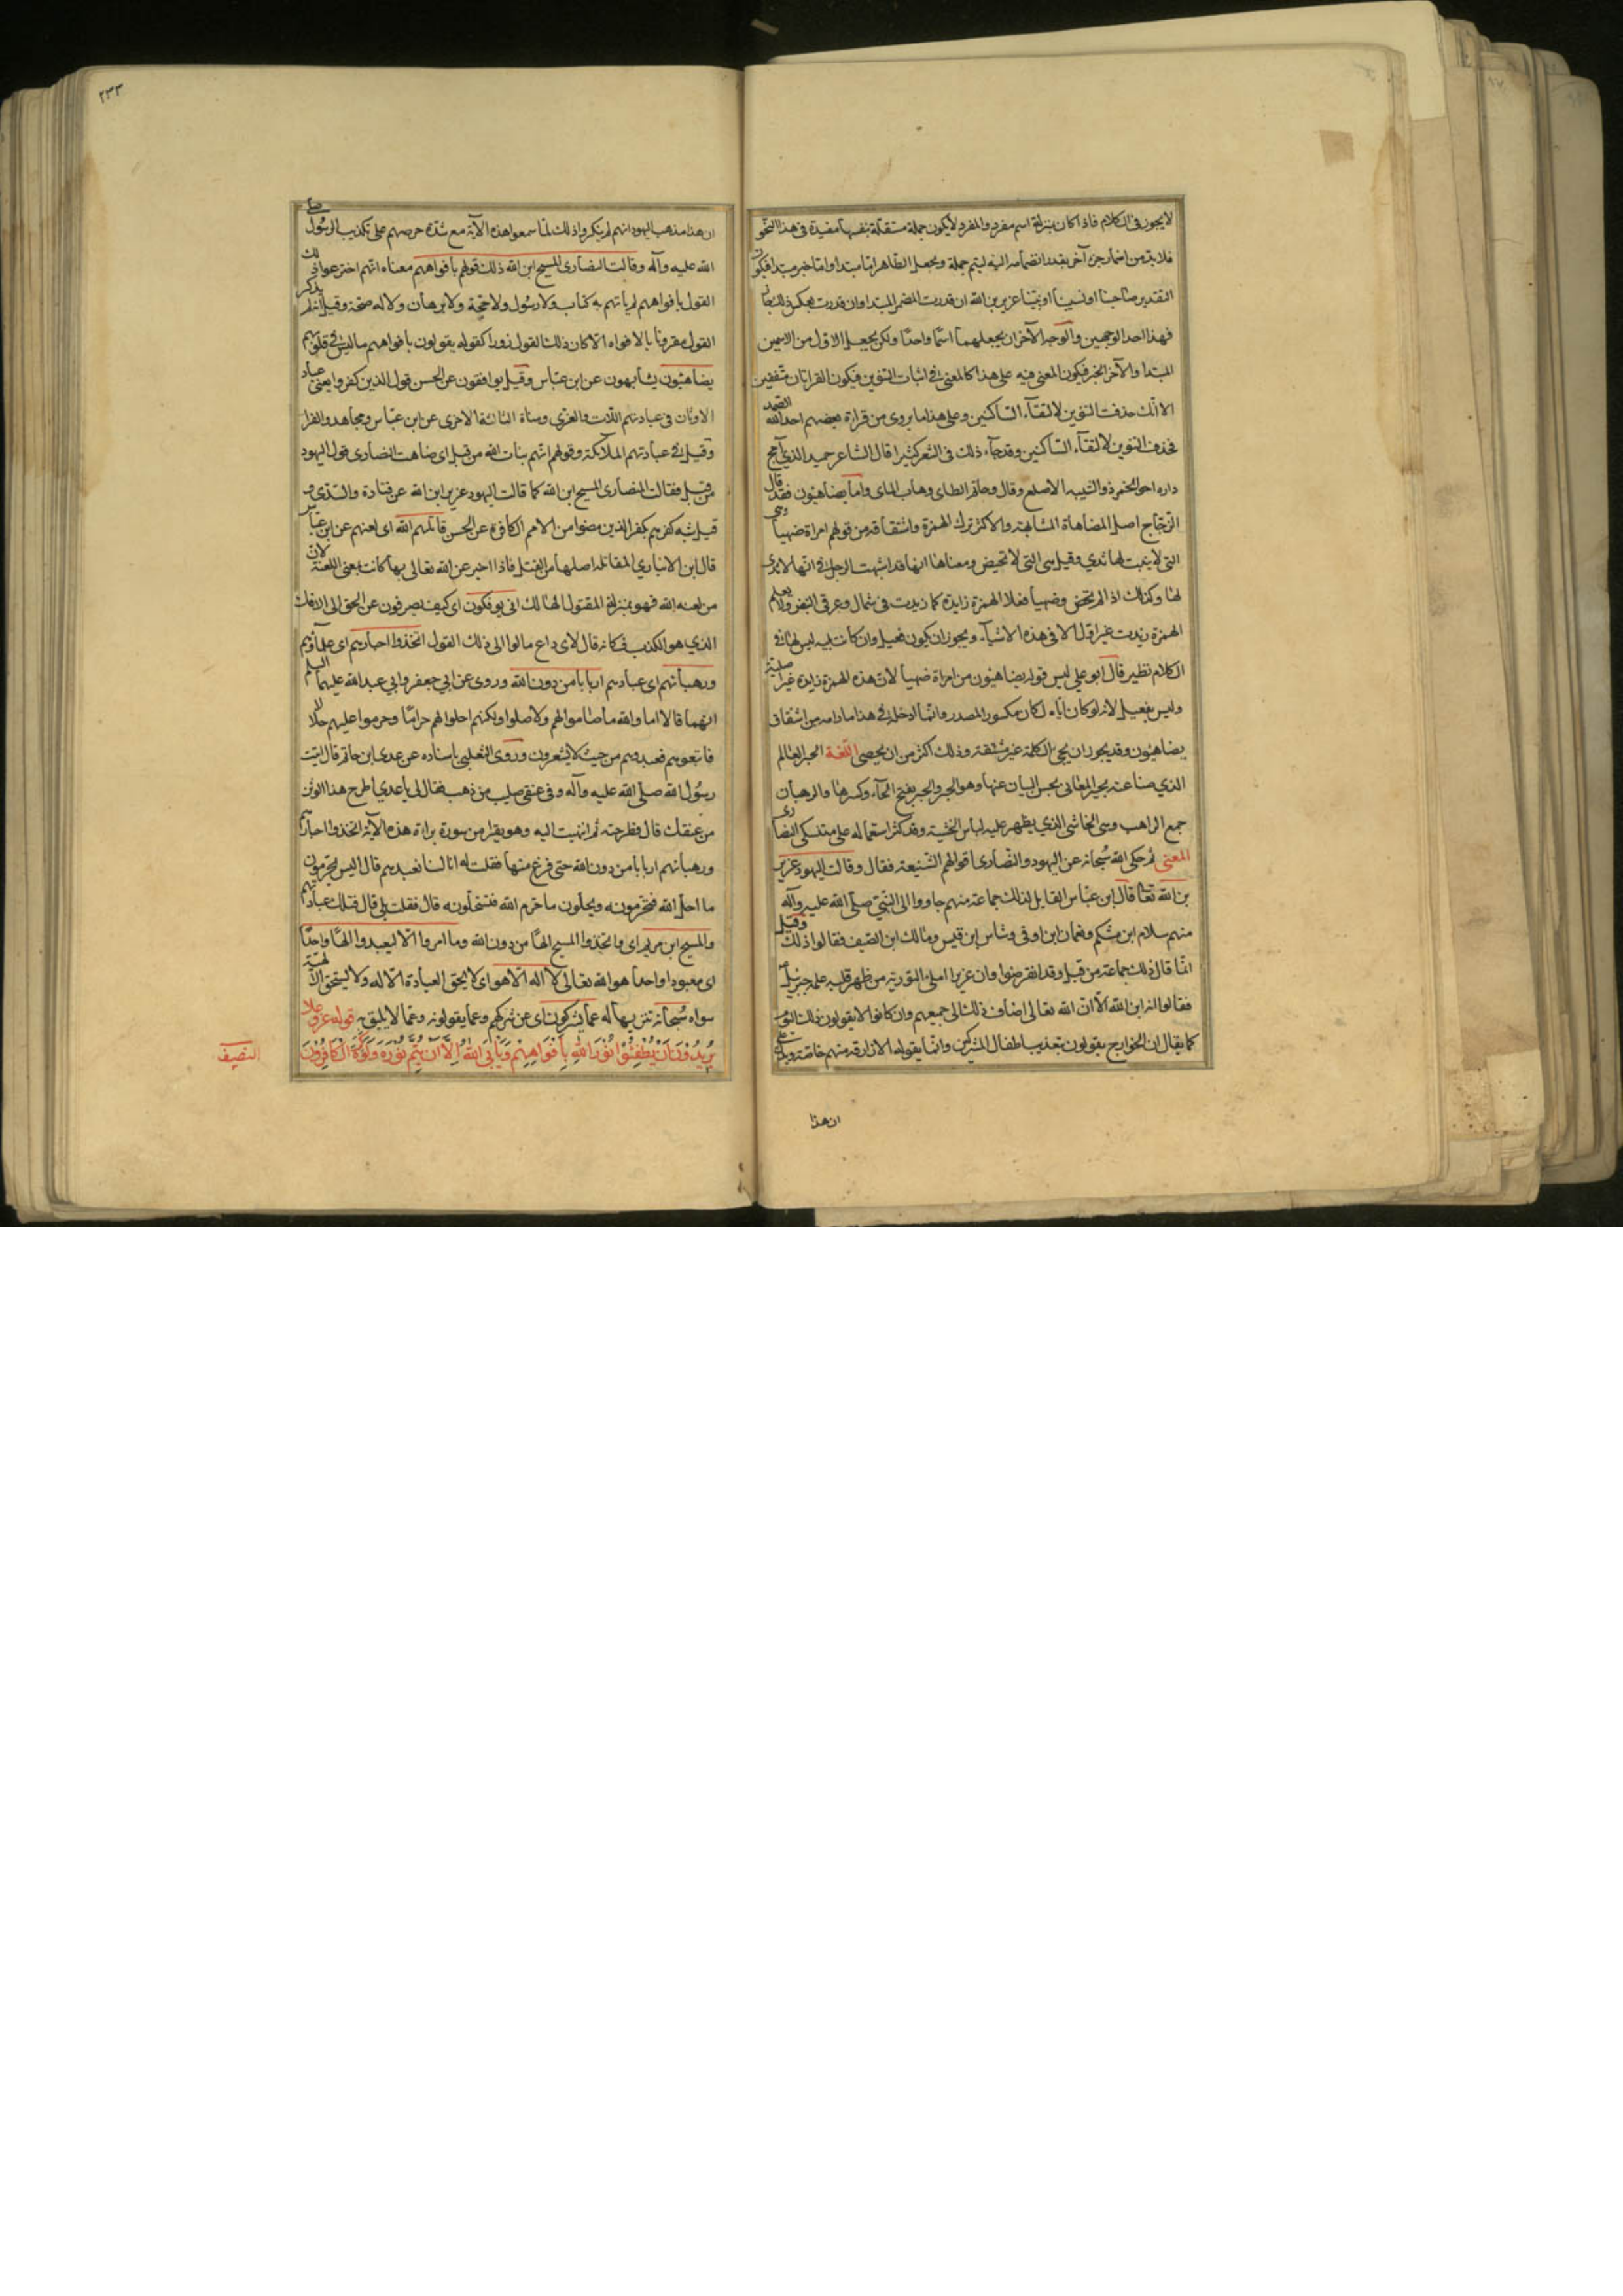 لا يجوز فى الكلام فاذا كان بمنزلة اسم مفرد والمفرد لا يكون جملة مستقلة بنفسها مفيدة فى هذا النحو
فلا بد من اضمار جزء آخر يقدر انضمامه اليه ليتم جملة ويجعل الظاهر اما مبتدا واما خبر مبتدا فيكون
التقدير صاحبنا او نسيبنا او نبينا عزير بن الله ان قدرت المضمر المبتدا وان قدرت بعكس ذلك جاز
فهذا احد الوجهين والوجه الآخر ان يجعلهما اسما واحدا ولكن يجعل الاول من الاسمين
المبتدا والآخر الخبر فيكون المعنى فيه على هذا كالمعنى فى اثبات التنوين فيكون القراءتان متفقين
الا انك حذفت التنوين لالتقاء الساكنين وعلى هذا ما يروى من قراءة بعضهم احد الله الصمد
فحذف التنوين لالتقاء الساكنين وقد جاء ذلك فى الشعر كثيرا قال الشاعر حميد الذي امج
داره اخو الخمر ذو الشيبه الاصلع وقال وحاتم الطاى وهاب الماى واما يضاهئون فقد قال
الزجاج اصل المضاهاة المشابهة والاكثر ترك الهمزة واشتقاقه من قولهم امراة ضهيا وهى
التى لا ينبت لها ثدي وقيل هى التى لا تحيض ومعناها انها قد اشبهت الرجل فى انها لا ثدى
لها وكذلك اذا لم تحض وضهيا فعلا الهمزة زايدة كما زيدت فى شمال وغرقى البيض ولا يعلم
الهمزة زيدت غير اول الا فى هذه الاشياء ويجوز ان يكون فعيل وان كانت بنيه ليس لها فى
الكلام نظير قال ابو على ليس قوله يضاهئون من امراة ضهيا لان هذه الهمزة زايدة غير اصلية
وليس بفعيل لانه لو كان اياه لكان مكسور المصدر وانما ادخله فى هذا ما رامه من اشتقاق
يضاهئون وقد يجوز ان يجئ الكلمة غير مشتقة وذلك اكثر من ان يحصى اللغة الحبر العالم
الذي صناعته تحبير المعانى بحسن البيان عنها وهو الحبر والحبر بفتح الحاء وكسرها والرهبان
جمع الراهب وهى الخاشى الذي يظهر عليه لباس الخشية وقد كثر استعماله على متنسكى النصارى
المعنى ثم حكى الله سبحانه عن اليهود والنصارى اقوالهم الشنيعة فقال وقالت اليهود عزير
بن الله تعا قال ابن عباس القايل لذلك جماعة منهم جاووا الى النبى صلى الله عليه وآله
منهم سلام ابن مشكم ونعمان ابن اوفى وشاس ابن قيس ومالك ابن الصيف فقالوا ذلك وقيل
انما قال ذلك جماعة من قبل وقد انقرضوا وان عزيرا املى التورية من ظهر قلبه علمه جبرئيل ع
فقالوا انه ابن الله الا ان الله تعالى اضاف ذلك الى جميعهم وان كانوا لا يقولون ذلك اليوم
كما يقال ان الخوارج يقولون بتعذيب اطفال المشركين وانما يقوله الازارقة منهم خاصة ويدل على
ان هذا
٢٣٣
ان هذا مذهب اليهود انهم لم ينكروا ذلك لما سمعوا هذه الآية مع شدة حرصهم على تكذيب الرسول صلى
الله عليه وآله وقالت النصارى المسيح ابن الله ذلك قولهم بافواههم معناه انهم اخترعوا ذلك
القول بافواههم لم ياتهم به كتاب ولا رسول ولا حجة ولا برهان ولا له صحة وقيل انه لم يذكر
القول مقرونا بالافواه الا كان ذلك القول زورا كقوله يقولون بافواههم ما ليس فى قلوبهم
يضاهئون يشابهون عن ابن عباس وقيل يوافقون عن الحسن قول الذين كفروا يعنى عباد
الاوثان فى عبادتهم اللات والعزى ومناة الثالثة الاخرى عن ابن عباس ومجاهد والفرا
وقيل فى عبادتهم الملائكة وقولهم انهم بنات الله من قبل اى ضاهت النصارى قول اليهود
من قبل فقالت النصارى المسيح ابن الله كما قالت اليهود عزير ابن الله عن قتادة والسدى و
قيل شبه كفرهم بكفر الذين مضوا من الامم الكافرة عن الحسن قاتلهم الله اى لعنهم عن ابن عباس
قال ابن الانباري المقاتلة اصلها من القتل فاذا اخبر عن الله تعالى بها كانت بمعنى اللعنة لان
من لعنه الله فهو بمنزلة المقتول الهالك انى يؤفكون اى كيف يصرفون عن الحق الى الافك
الذي هو الكذب فكانه قال لاى داع مالوا الى ذلك القول اتخذوا احبارهم اى علماؤهم
ورهبانهم اى عبادهم اربابا من دون الله وروى عن ابي جعفر وابي عبد الله عليهما السلم
انهما قالا اما والله ما صاموا لهم ولا صلوا ولكنهم احلوا لهم حراما وحرموا عليهم حلالا
فاتبعوهم فعبدوهم من حيث لا يشعرون وروى الثعلبى باسناده عن عدى ابن حاتم قال اتيت
رسول الله صلى الله عليه وآله وفى عنقى صليب من ذهب فقال لى يا عدي اطرح هذا الوثن
من عنقك قال فطرحته ثم انتهيت اليه وهو يقرا من سورة براة هذه الآية اتخذوا احبارهم
ورهبانهم اربابا من دون الله حتى فرغ منها فقلت له انا لسنا نعبدهم قال اليس يحرمون
ما احل الله فتحرمونه ويحلون ما حرم الله فتستحلونه قال فقلت بلى قال فتلك عبادتهم
والمسيح ابن مريم اى واتخذوا المسيح الها من دون الله وما امروا الا ليعبدوا الها واحدا
اى معبودا واحدا هو الله تعالى لا اله الا هو اى لا يحق العبادة الا له ولا يستحق الالهية
سواه سبحانه تنزيها له عما يشركون اى عن شركهم وعما يقولونه وعما لا يليق به قوله عز وعلا
يُرِيدُونَ اَنْ يُطْفِئُوا نُورَ اللهِ بِاَفْوَاهِهِمْ وَيَأْبَى اللهُ اِلَّا اَنْ يُتِمَّ نُورَهُ وَلَوْ كَرِهَ الْكَافِرُونَ
النصيف